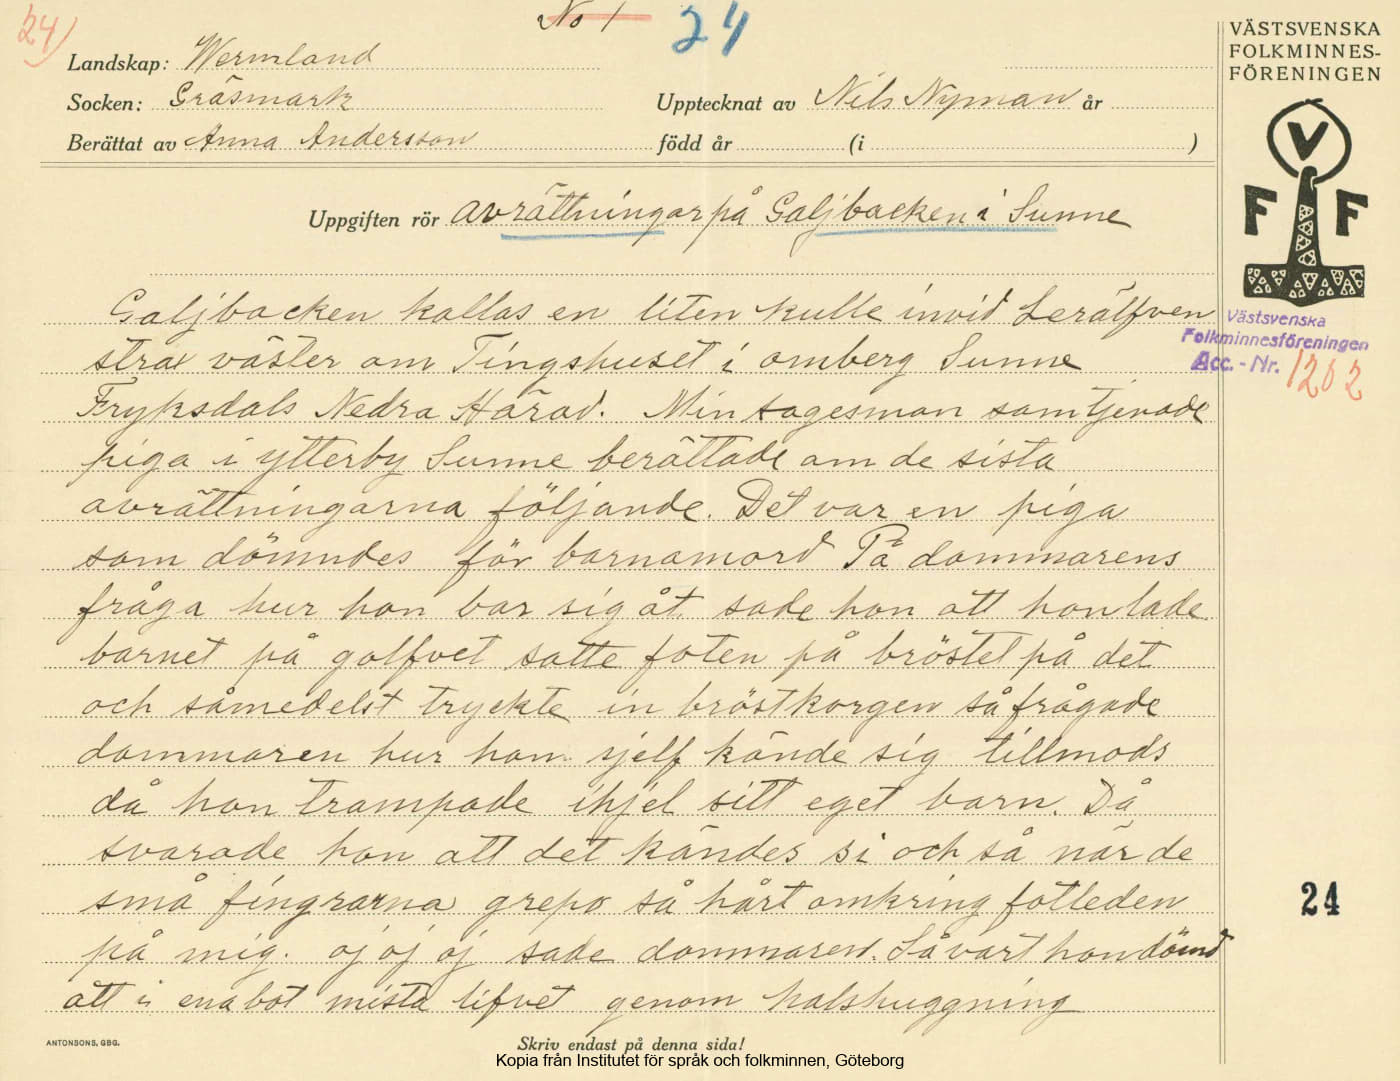 24)
No 1
24
VÄSTSVENSKA
FOLKMINNES-
FÖRENINGEN
Landskap: Wermland
Socken: Gräsmark
Upptecknat av Nils Nyman år
Berättat av Anna Andersson
född år (i )
V
F F
Uppgiften rör avrättningar på Galjbacken i Sunne
Galjbacken kallas en liten kulle invid Lerälfven
strax väster om Tingshuset i omberg Sunne
Fryksdals Nedra Härad. Min sagesman som tjenade
piga i ytterby Sunne berättade om de sista
avrättningarna följande. Det var en piga
som dömndes för barnamord På dommarens
fråga hur hon bar sig åt sade hon att hon lade
barnet på golfvet satte foten på bröstet på det
och såmedelst tryckte in bröstkorgen så frågade
dommaren hur hon sjelf kände sig tillmods
då hon trampade ihjel sitt eget barn. Då
svarade hon att det kändes si och så när de
små fingrarna grepo så hårt omkring fotleden
på mig. oj oj oj sade dommaren. Så vart hon dömd
att i enabot mista lifvet genom halshuggning
Västsvenska
Folkminnesföreningen
Acc.-Nr. 1202
24
ANTONSONS, GBG.
Skriv endast på denna sida!
Kopia från Institutet för språk och folkminnen, Göteborg